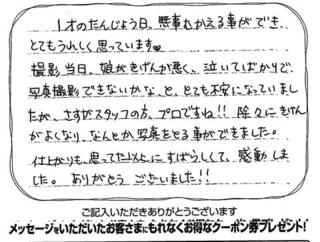 1才のたんじょう日、無事むかえる事ができ、
とてもうれしく思っています♥
撮影当日、娘がきげんが悪く、泣いてばかりで、
写真撮影できないかな、と、とても不安になっていまし
たが、さすがスタッフの方、プロですね!! 除々にきげん
がよくなり、なんとか写真をとる事ができました。
仕上がりも、思ってた以上にすばらしくて、感動しま
した。ありがとうございました!!
ご記入いただきありがとうございます
メッセージをいただいたお客さまにもれなくお得なクーポン券プレゼント!